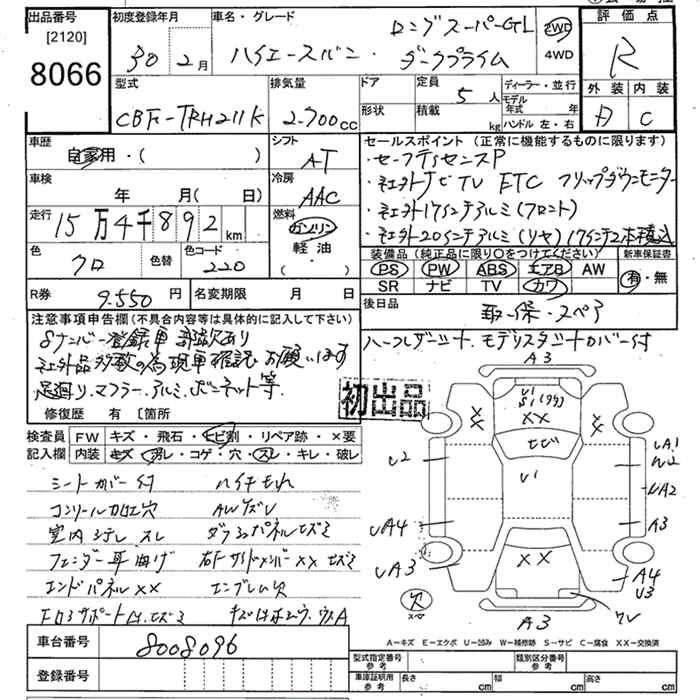 出品番号
[2120]
8066
初度登録年月
30年2月
車名・グレード
ロングスーパーGL
ハイエースバン・ダークプライム
2WD
4WD
評価点
R
外装 内装
D C
型式
CBF-TRH211K
排気量
2.700cc
ドア
形状
定員
5人
積載
kg
ディーラー・並行
モデル年式 年
ハンドル 左・右
車歴
自家用・( )
シフト
AT
車検
年 月( 日)
冷房
AAC
走行
15万4千892km
燃料
ガソリン
軽油
( )
色
クロ
色替
色コード
220
R券
9.550円
名変期限 月 日
セールスポイント(正常に機能するものに限ります)
・セーフティセンスP
・社外ナビTV ETC フリップダウンモニター
・社外17インチアルミ(フロント)
・社外20インチアルミ(リヤ)17インチ2本積込
装備品(純正品に限り○をつけてください)
PS PW ABS エアB AW
SR ナビ TV カワ
新車保証書
有・無
後日品
取・保・スペア
注意事項申告欄(不具合内容等は具体的に記入して下さい)
8ナンバー登録車
社外品多数の為現車確認お願いします
足廻り.マフラー.アルミ.ボンネット等.
修復歴 有 〔箇所
初出品
ハーフレザーシート.モデリスタシートカバー付
検査員記入欄
FW キズ・飛石・ヒビ割・リペア跡・×要
内装 キズ・汚レ・コゲ・穴・スレ・キレ・破レ
シートカバー付
コンソール加工穴 AWキズU
室内シテレ スレ ダッシュパネルヒズミ
フェンダー耳曲げ 右FサイドメンバーXXヒズミ
エンドパネルXX エンブレム欠
A3
U1
S1
XX
XX
XX
ヒビ
U1
XX
U2
UA4
UA3
UA1
W2
UA2
A3
A4
U3
欠
スペア
A3
A－キズ E－エクボ U－凹み W－補修跡 S－サビ C－腐食 XX－交換済
車台番号
8008096
登録番号
型式指定番号 参考
類別区分番号 参考
車庫証明用 参考
長さ cm
幅 cm
高さ cm